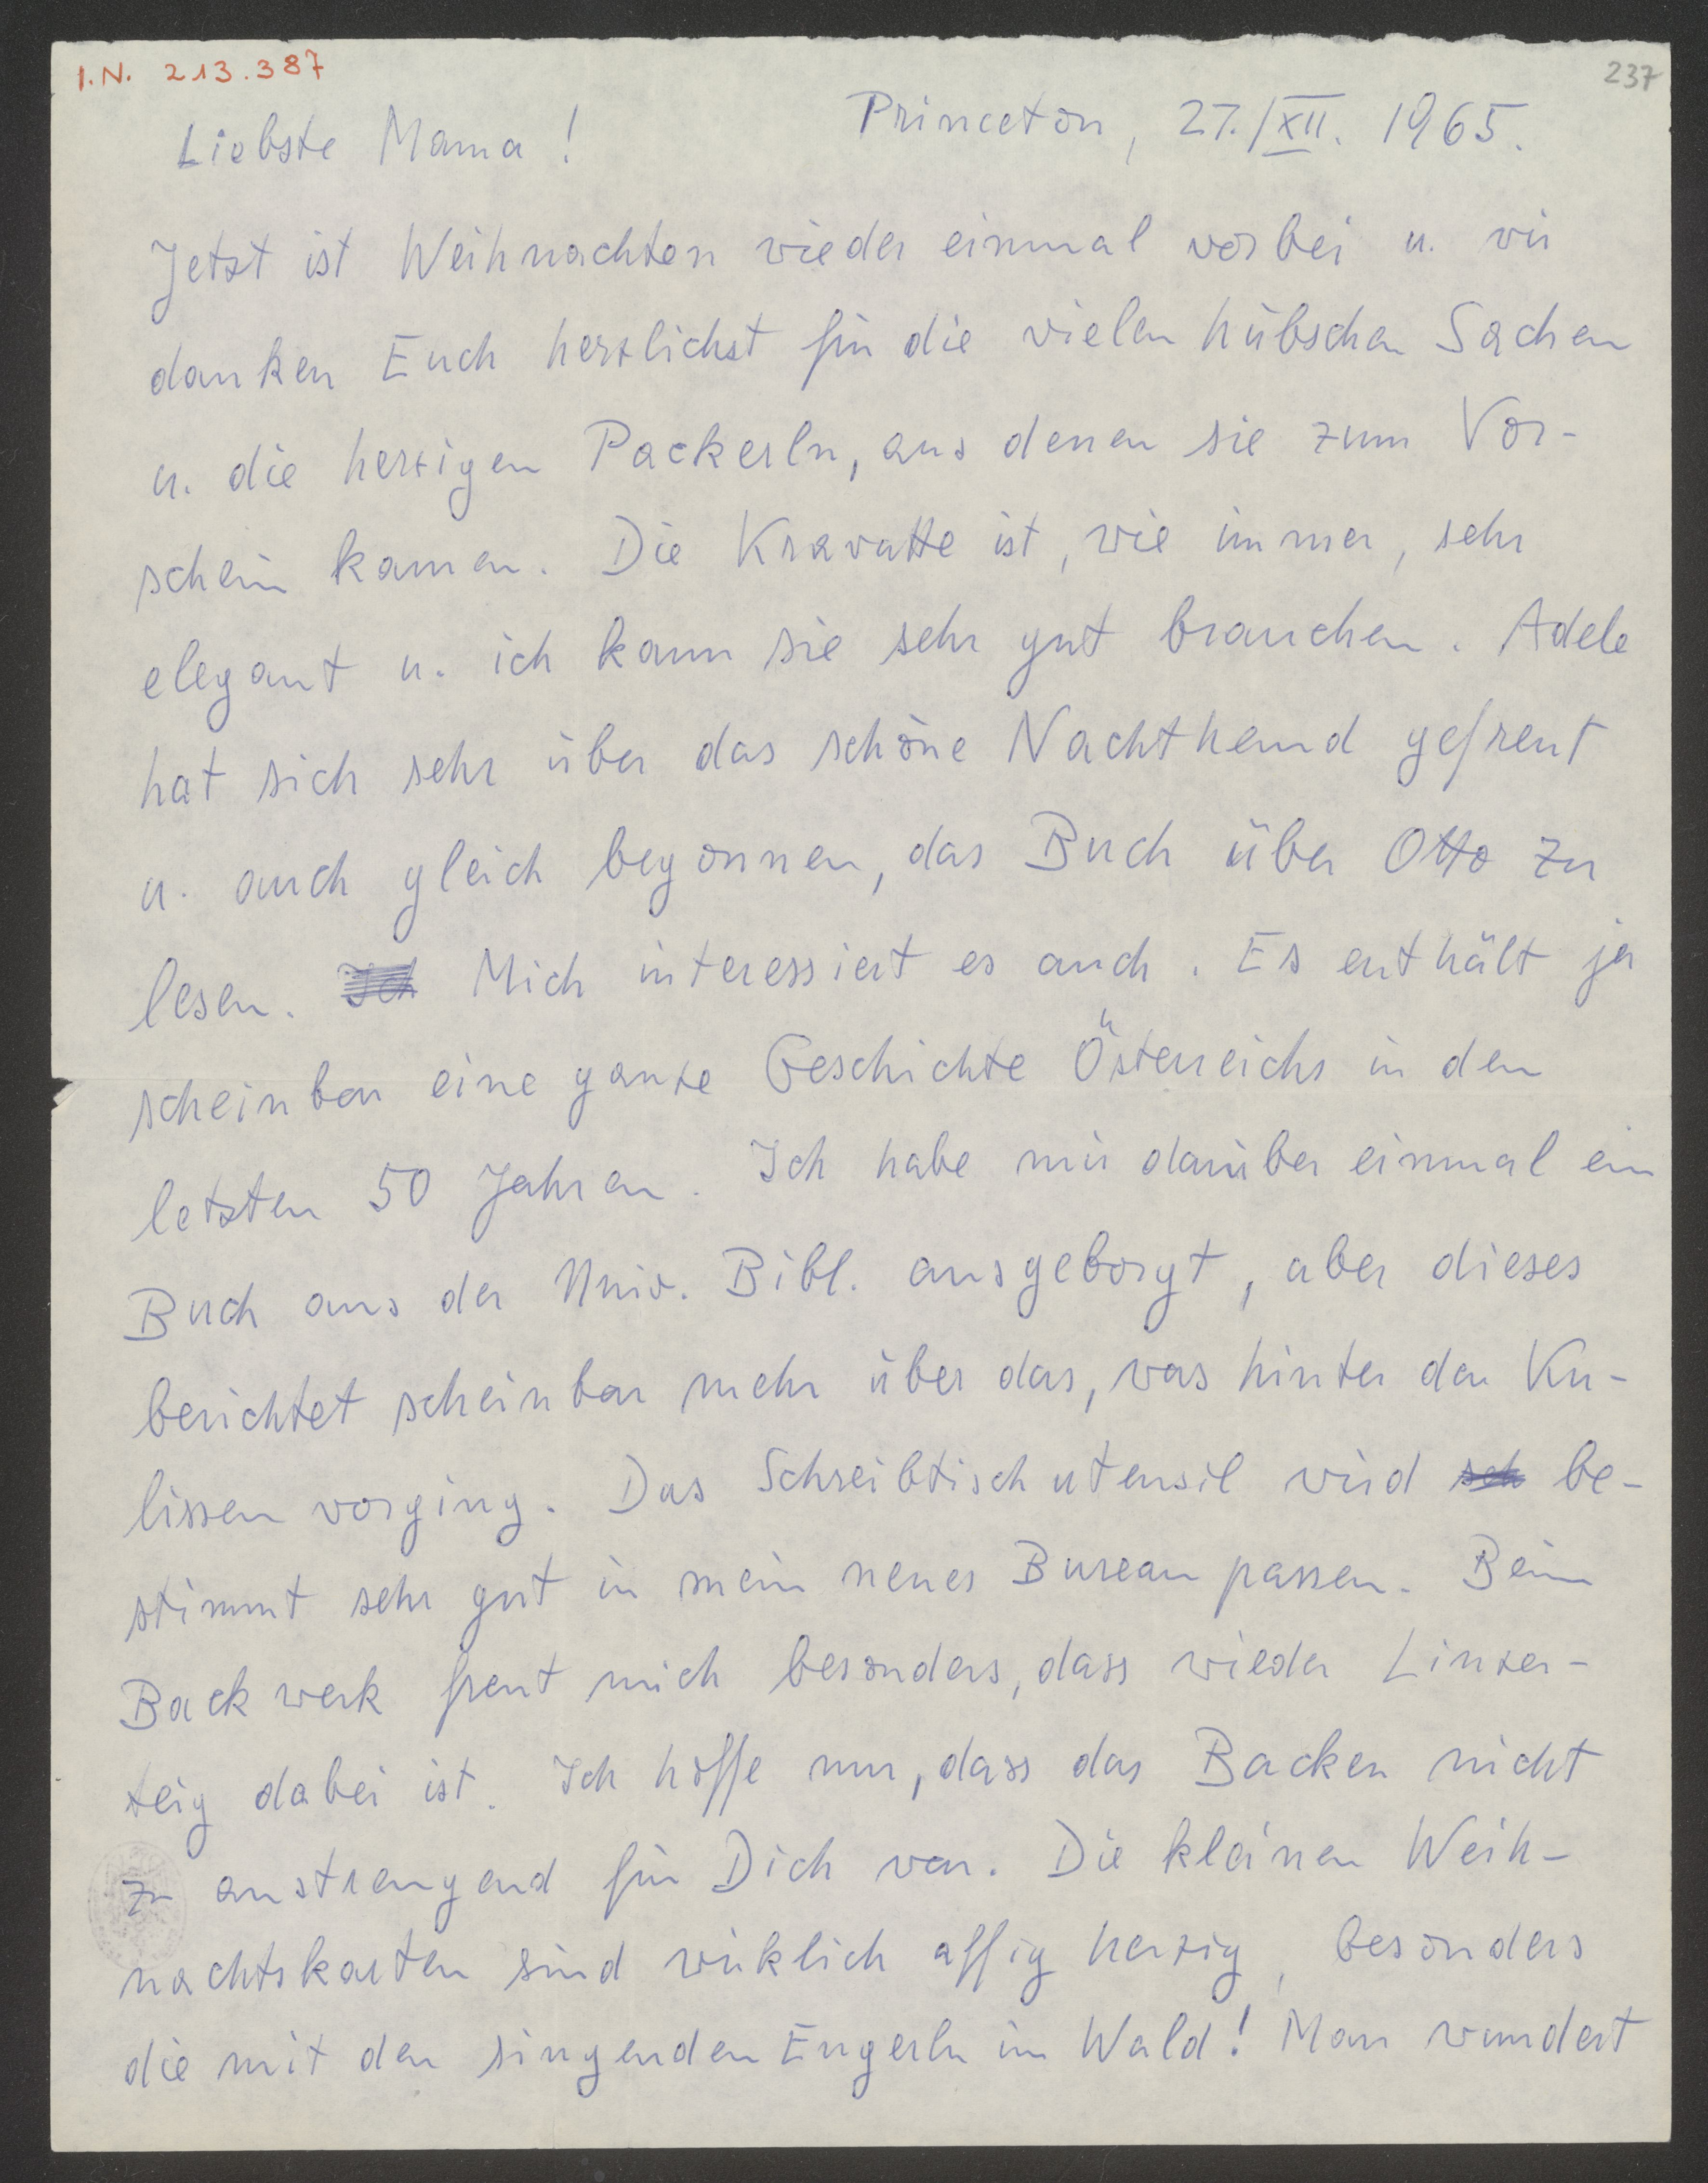 I.N. 213.387
237
Liebste Mama!
Princeton, 27./XII. 1965.
Jetzt ist Weihnachten wieder einmal vorbei u. wir
danken Euch herzlichst für die vielen hübschen Sachen
u. die herzigen Packerln, aus denen sie zum Vor-
schein kamen. Die Kravatte ist, wie immer, sehr
elegant u. ich kann sie sehr gut brauchen. Adele
hat sich sehr über das schöne Nachthemd gefreut
u. auch gleich begonnen, das Buch über Otto zu
lesen. Ich Mich interessiert es auch. Es enthält ja
scheinbar eine ganze Geschichte Österreichs in den
letzten 50 Jahren. Ich habe mir darüber einmal ein
Buch aus der Univ. Bibl. ausgeborgt, aber dieses
berichtet scheinbar mehr über das, was hinter den Ku-
lissen vorging. Das Schreibtischutensil wird sch be-
stimmt sehr gut in mein neues Bureau passen. Beim
Backwerk freut mich besonders, dass wieder Linzer-
teig dabei ist. Ich hoffe nur, dass das Backen nicht
zu anstrengend für Dich war. Die kleinen Weih-
nachtskarten sind wirklich affig herzig, besonders
die mit den singenden Engerln im Wald! Man wundert